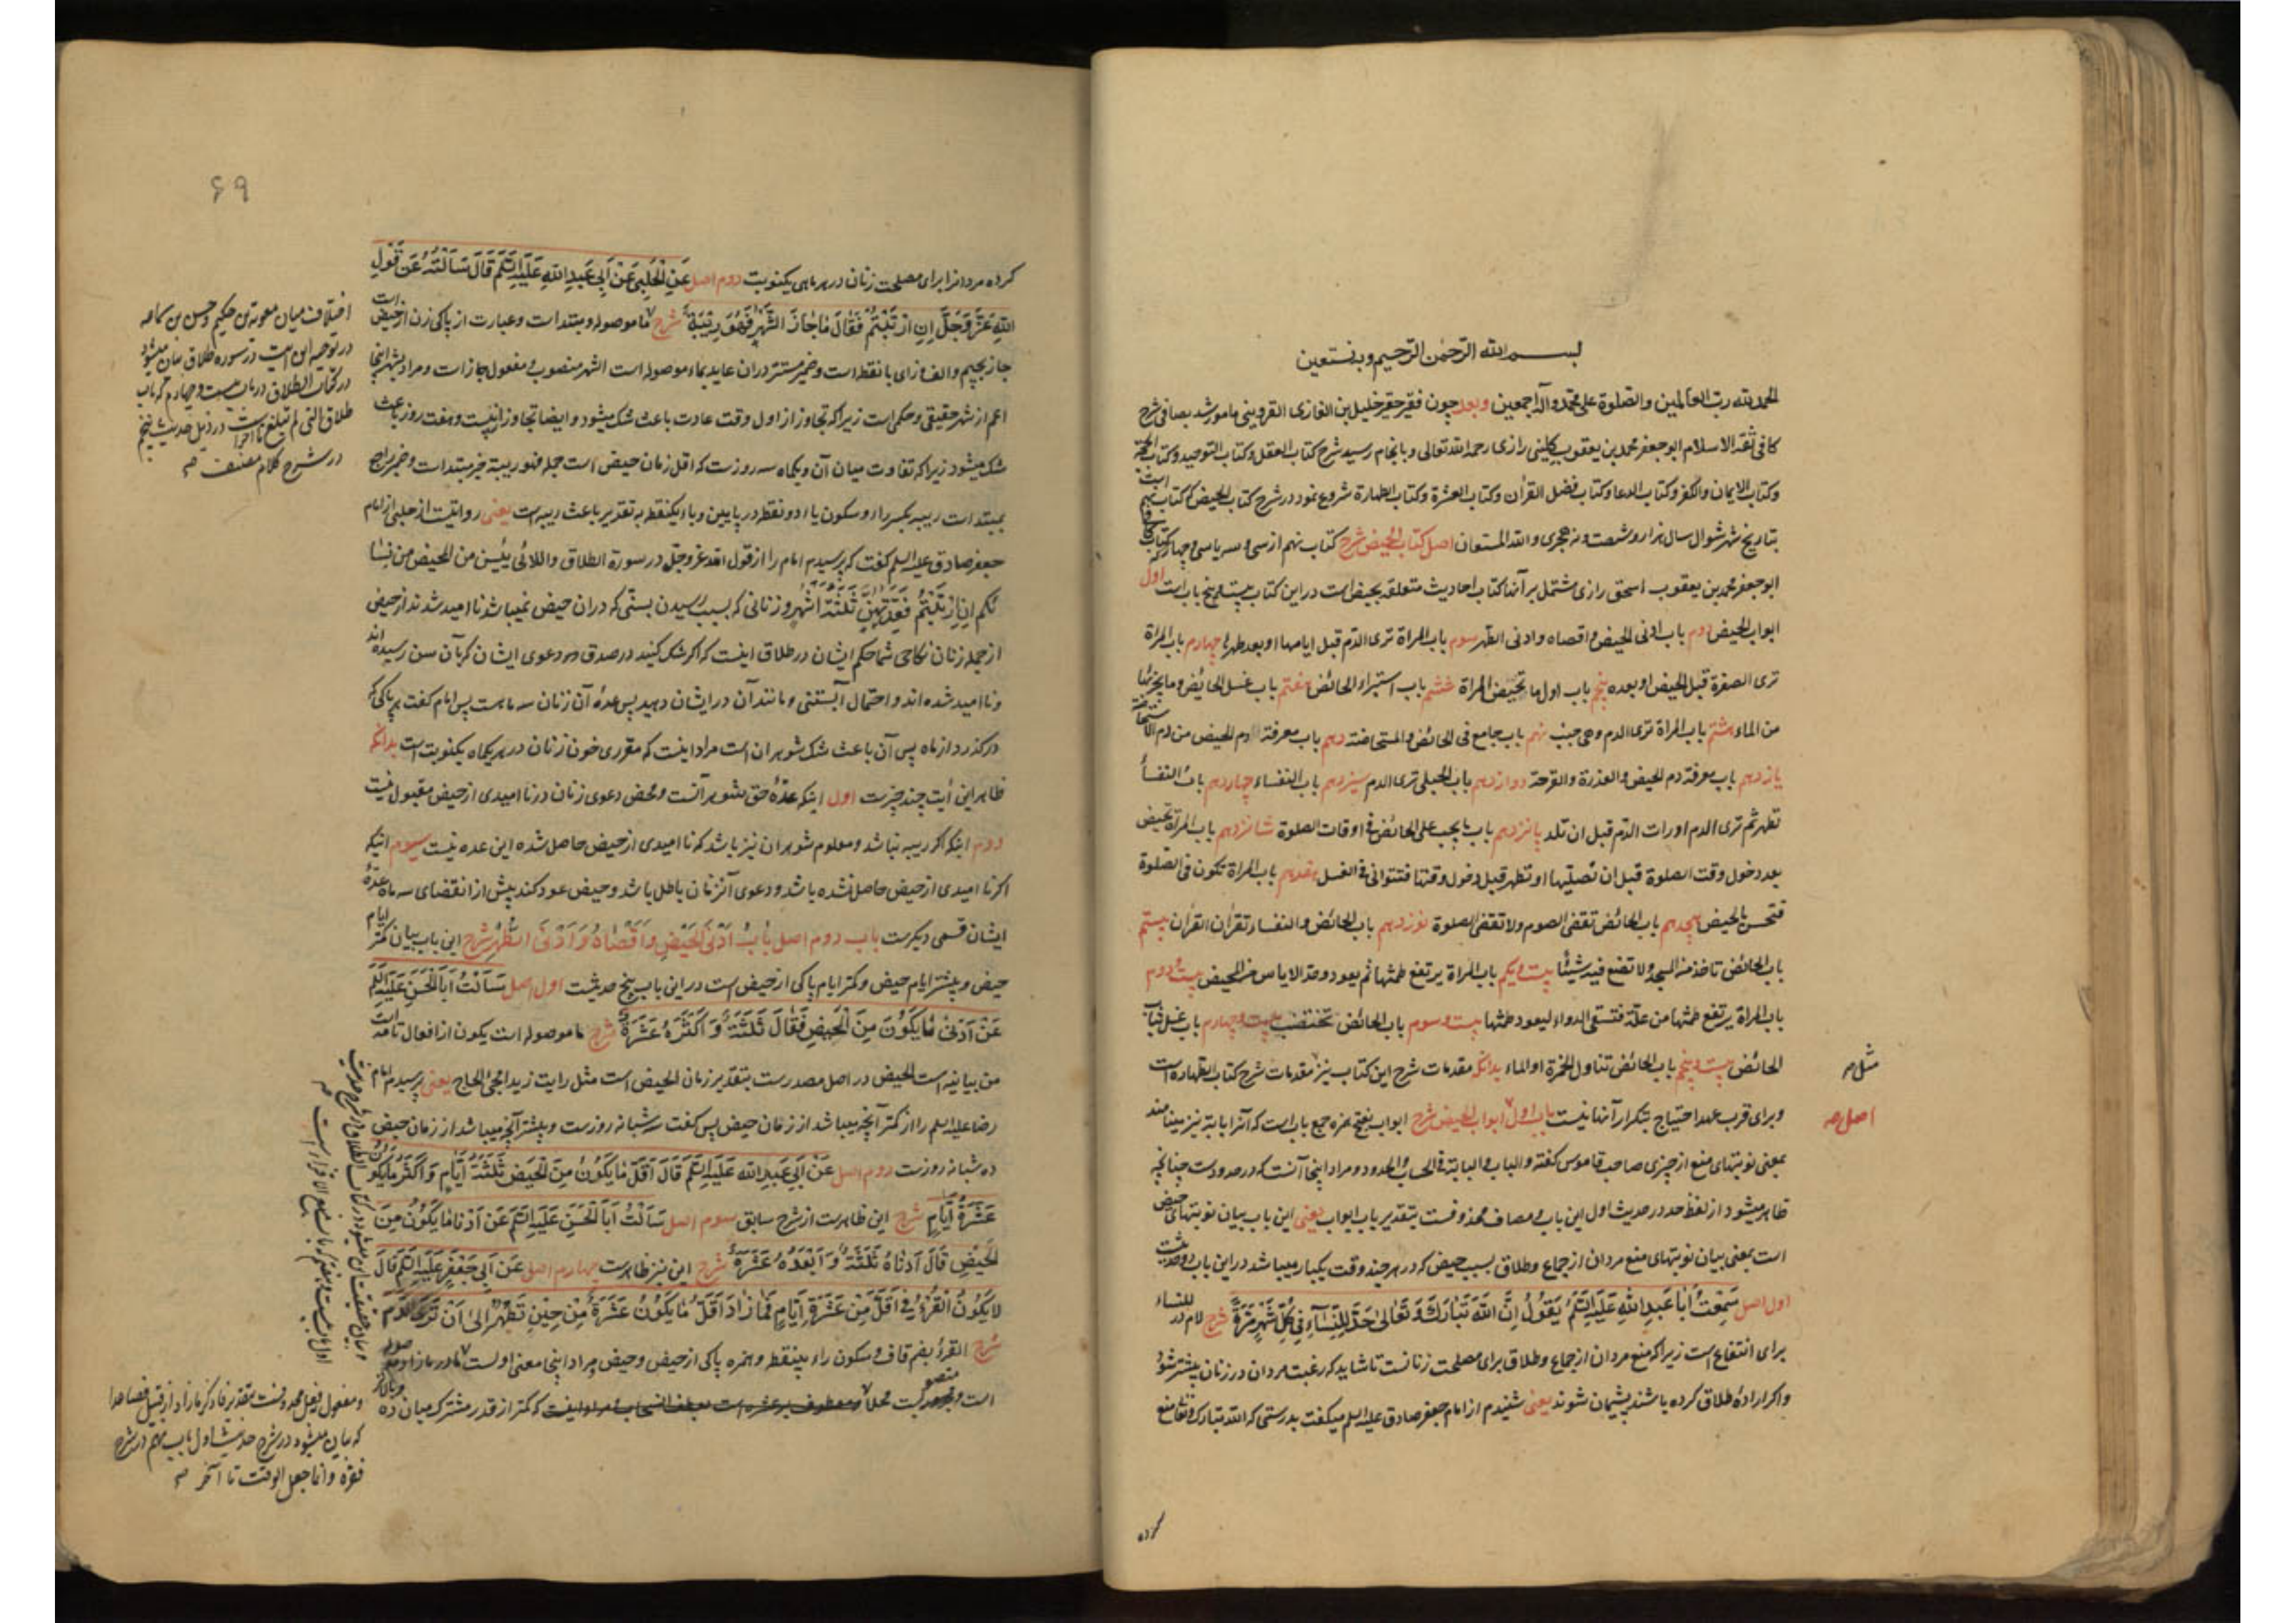 بسم الله الرحمن الرحیم وبه نستعین
الحمد لله رب العالمین والصلوة علی محمد وآله اجمعین وبعد چون فقیر حقیر خلیل بن الغازی القزوینی مامور شد بصافی شرح
کافی ثقة الاسلام ابوجعفر محمد بن یعقوب کلینی رازی رحمه الله تعالی و بانجام رسید شرح کتاب العقل وکتاب التوحید وکتاب الحجة
وکتاب الایمان والکفر وکتاب الدعا وکتاب فضل القرآن وکتاب العشرة وکتاب الطهارة شروع نمود در شرح کتاب الحیض که کتاب نهم است
بتاریخ شهر شوال سال هزار و شصت و نه هجری والله المستعان اصل کتاب الحیض شرح کتاب نهم از سی و سه یا سی و چهار کتاب
ابوجعفر محمد بن یعقوب اسحق رازی مشتمل بر آنها کتاب احادیث متعلقه بحیض است در این کتاب بیست و پنج باب است اول
ابواب الحیض دوم باب ادنی الحیض واقصاه وادنی الطهر سوم باب المراة تری الدم قبل ایامها او بعد طهرها چهارم باب المراة
تری الصفرة قبل الحیض او بعده پنجم باب اول ما تحیض المراة ششم باب استبراء الحائض هفتم باب غسل الحائض وما یجزئها
من الماء هشتم باب المراة تری الدم وهی جنب نهم باب جامع فی الحائض والمستحاضة دهم باب معرفة دم الحیض من دم الاستحاضة
یازدهم باب معرفة دم الحیض والعذرة والقرحة دوازدهم باب الحبلی تری الدم سیزدهم باب النفساء چهاردهم باب النفساء
تطهر ثم تری الدم او رات الدم قبل ان تلد پانزدهم باب ما یجب علی الحائض فی اوقات الصلوة شانزدهم باب المراة تحیض
بعد دخول وقت الصلوة قبل ان تصلیها او تطهر قبل دخول وقتها فتتوانی فی الغسل هفدهم باب المراة تکون فی الصلوة
فتحس بالحیض هجدهم باب الحائض تقضی الصوم ولا تقضی الصلوة نوزدهم باب الحائض والنفساء تقرآن القرآن بیستم
باب الحائض تاخذ من المسجد ولا تضع فیه شیئا بیست و یکم باب المراة یرتفع طمثها ثم یعود وحد الایاس من المحیض بیست و دوم
باب المراة یرتفع طمثها من علة فتسقی الدواء لیعود طمثها بیست و سوم باب الحائض تختضب بیست و چهارم باب غسل ثیاب
الحائض بیست و پنجم باب الحائض تناول الخمرة او الماء بدانکه مقدمات شرح این کتاب نیز مثل مقدمات شرح کتاب الطهارة است
مثل صح
وبرای قرب عهد احتیاج بتکرار آنها نیست باب اول ابواب الحیض شرح ابواب بفتح همزه جمع باب است که آنرا بابة نیز مینامند
اصل صح
بمعنی نوبتهای منع از چیزی صاحب قاموس گفته والباب والبابة فی الحساب والحدود و مراد اینجا آنست که در حدودست چنانچه
ظاهر میشود از لفظ حد در حدیث اول این باب و مضاف محذوفست بتقدیر باب ابواب یعنی این باب بیان نوبتهای حیض
است بمعنی بیان نوبتهای منع مردان از جماع وطلاق بسبب حیض که در هر چند وقت یکبار میباشد در این باب دو حدیث
اول اصل سَمِعْتُ اَبَا عَبْدِ اللهِ عَلَیْهِ السَّلَم یَقُولُ اِنَّ اللهَ تَبَارَكَ وَتَعَالی حَدَّ لِلنِّسَآءِ فِی کُلِّ شَهْرٍ مَرَّةً شرح لام در للنساء
برای انتفاع است زیرا که منع مردان از جماع وطلاق برای مصلحت زنانست تا شاید که رغبت مردان در زنان بیشتر شود
واگر اراده طلاق کرده باشند پشیمان شوند یعنی شنیدم از امام جعفر صادق علیه السلم میگفت بدرستی که الله تبارک وتعالی منع
کرده
۶۹
کرده مردانرا برای مصلحت زنان در هر ماهی یکنوبت دوم اصل عَنِ الْحَلَبِی عَنْ اَبِی عَبْدِ اللهِ عَلَیْهِ السَّلَم قَالَ سَاَلْتُهُ عَنْ قَوْلِ
اللهِ عَزَّ وَجَلَّ اِنِ ارْتَبْتُمْ فَقَالَ مَا جَازَ الشَّهْرَ فَهُوَ رِیبَةٌ شرح ما موصوله ومبتداست وعبارت از پاکی زن از حیض است
جاز بجیم والف وزای با نقطه است وضمیر مستتر در آن عاید بماء موصوله است الشهر منصوب ومفعول جاز است ومراد بشهر اینجا
اعم از شهر حقیقی وحکمی است زیرا که تجاوز از اول وقت عادت باعث شک میشود وایضا تجاوز از بیست و هفت روز باعث
شک میشود زیرا که تفاوت میان آن و یکماه سه روزست که اقل زمان حیض است جمله فهو ریبة خبر مبتداست وضمیر راجع
بمبتداست ریبه بکسر راء وسکون یاء دو نقطه در پایین وباء یکنقطه بتقدیر باعث ریبه است یعنی روایتست از حلبی از امام
جعفر صادق علیه السلم گفت که پرسیدم امام را از قول الله عز وجل در سورة الطلاق واللائی یئسن من المحیض من نسا
ئکم ان ارتبتم فعدتهن ثلثة اشهر وزنانی که بسبب رسیدن بسنی که در آن حیض نمیباشد نا امید شدند از حیض
از جمله زنان نکاحی شما حکم ایشان در طلاق اینست که اگر شک کنید در صدق دعوی ایشان که بآن سن رسیده اند
ونا امید شده اند واحتمال آبستنی ومانند آن در ایشان دهید پس عده آن زنان سه ماهست پس امام گفت هر پاکی که
درگذرد از ماه پس آن باعث شک شوهران است مراد اینست که مقرری خون زنان در هر یکماه یکنوبت است بدانکه
ظاهر این آیت چند چیزست اول اینکه عده حق شوهر آنست ومحض دعوی زنان در نا امیدی از حیض مقبول نیست
دوم اینکه اگر ریبه نباشد ومعلوم شوهران نیز باشد که نا امیدی از حیض حاصل شده این عده نیست سیوم اینکه
اگر نا امیدی از حیض حاصل نشده باشد ودعوی آنزنان باطل باشد وحیض عود کند پیش از انقضای سه ماه عده
ایشان قسمی دیگرست باب دوم اصل بَابُ اَدْنَی الْحَیْضِ وَاَقْصَاهُ وَاَدْنَی الطُّهْرِ شرح این باب بیان کمتر ایام
حیض وبیشتر ایام حیض وکمتر ایام پاکی از حیض است در این باب پنج حدیثست اول اصل سَاَلْتُ اَبَا الْحَسَنِ عَلَیْهِ السَّلَم
عَنْ اَدْنَی مَا یَکُونُ مِنَ الْحَیْضِ فَقَالَ ثَلَثَةٌ وَاَکْثَرُهُ عَشَرَةٌ شرح ما موصوله است یکون از افعال تامه است
من بیانیه است الحیض در اصل مصدرست بتقدیر زمان الحیض است مثل رایت زیدا مجیء الحاج یعنی پرسیدم امام
رضا علیه السلم را از کمتر آنچه میباشد از زمان حیض پس گفت سه شبانه روزست وبیشتر آنچه میباشد از زمان حیض
ده شبانه روزست دوم اصل عَنْ اَبِی عَبْدِ اللهِ عَلَیْهِ السَّلَم قَالَ اَقَلُّ مَا یَکُونُ مِنَ الْحَیْضِ ثَلَثَةُ اَیَّامٍ وَاَکْثَرُ مَا یَکُونُ
عَشَرَةُ اَیَّامٍ شرح این ظاهرست از شرح سابق سوم اصل سَاَلْتُ اَبَا الْحَسَنِ عَلَیْهِ السَّلَم عَنْ اَدْنَی مَا یَکُونُ مِنَ
الْحَیْضِ قَالَ اَدْنَاهُ ثَلَثَةٌ وَاَبْعَدُهُ عَشَرَةٌ شرح این نیز ظاهرست چهارم اصل عَنْ اَبِی جَعْفَرٍ عَلَیْهِ السَّلَم قَالَ
لَا یَکُونُ الْقُرْءُ فِی اَقَلَّ مِنْ عَشَرَةِ اَیَّامٍ فَمَا زَادَ اَقَلُّ مَا یَکُونُ عَشَرَةٌ مِنْ حِینِ تَطْهُرُ اِلَی اَنْ تَرَی الدَّم
شرح القرء بضم قاف وسکون راء بینقطه وهمزه پاکی از حیض وحیض مراد اینجا معنی اولست ما در ما زاد موصوله
است محلا معطوف بر عشره است که کمتر از قدر مشترک میان ده
اختلاف میان معویة بن حکیم وحسن بن سماعه
در توجیه این آیت در سوره طلاق بیان میشود
در کتاب الطلاق در باب بیست و چهارم که باب
طلاق التی لم تبلغ تا آخر است در ذیل حدیث پنجم
در شرح کلام مصنف صح
اول باب بیست و هفتم
که بیان میشود در شرح حدیث اول باب نهم در شرح
فقره وانما جعل الوقت تا آخر صح